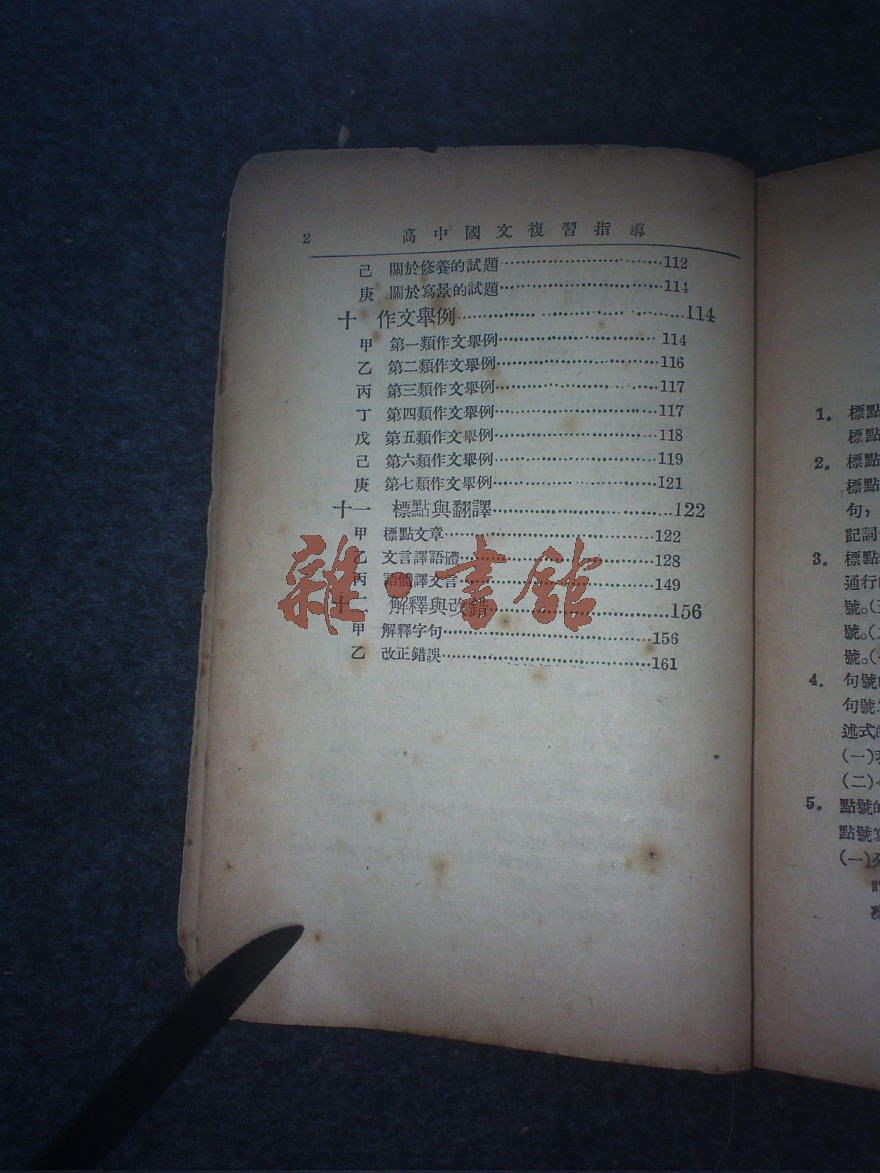 2 高中國文複習指導
己 關於修養的試題……112
庚 關於寫景的試題……114
十 作文舉例……114
甲 第一類作文舉例……114
乙 第二類作文舉例……116
丙 第三類作文舉例……117
丁 第四類作文舉例……117
戊 第五類作文舉例……118
己 第六類作文舉例……119
庚 第七類作文舉例……121
十一 標點與翻譯……122
甲 標點文章……122
乙 文言譯語體……128
丙 語體譯文言……149
十二 解釋與改錯……156
甲 解釋字句……156
乙 改正錯誤……161
雜·書館
1. 標點
標點
2. 標點
標點
句，
記詞
3. 標點
通行
號。
號。
號。
4. 句號
句號
述式
(一)
(二)
5. 點號的
點號
(一)列